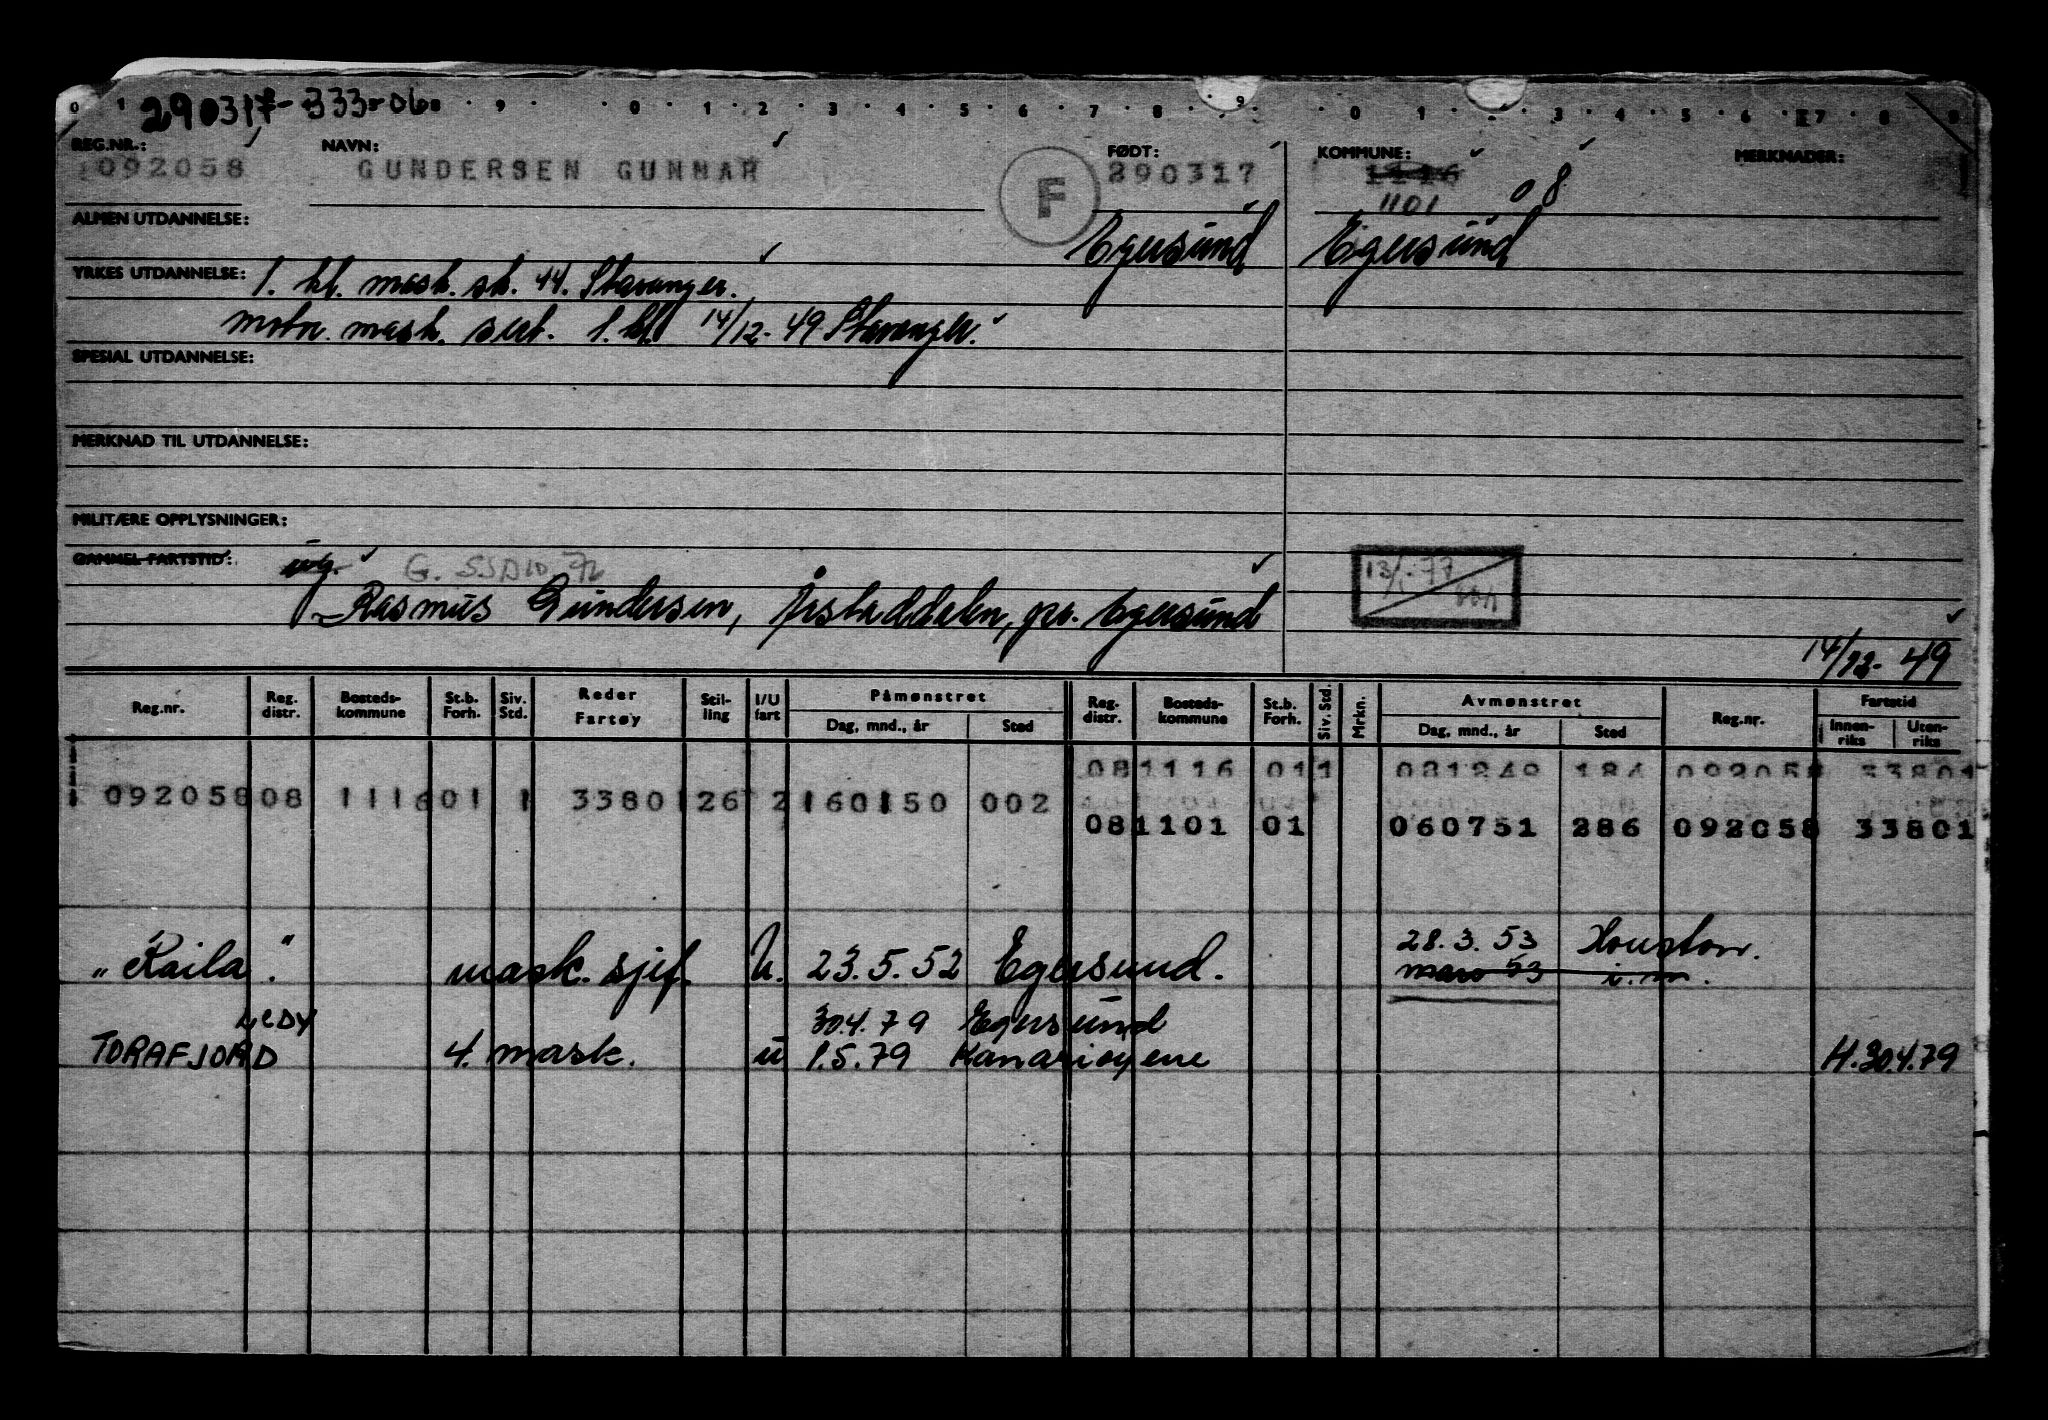 290317-333-06
REG.NR.: NAVN: FØDT: KOMMUNE: MERKNADER:
092058 GUNDERSEN GUNNAR F 290317 1116 08
1101
ALMEN UTDANNELSE: Egersund Egersund
YRKES UTDANNELSE: 1. kl. mask. sk. 44. Stavanger.
motor. mask. sert. 1. kl. 14/12-49 Stavanger.
SPESIAL UTDANNELSE:
MERKNAD TIL UTDANNELSE:
MILITÆRE OPPLYSNINGER:
GAMMEL FARTSTID: G. 13/1-77
Rasmus Gundersen, pr. Egersund
14/12-49
Reg.nr. Reg. distr. Bosteds-kommune St.b. Forh. Siv. Std. Reder Fartøy Stil-ling I/U fart Påmønstret Dag, mnd., år Sted Reg. distr. Bosteds-kommune St.b. Forh. Siv. Std. Mrkn. Avmønstret Dag, mnd., år Sted Reg.nr. Fartstid Innen-riks Uten-riks
081116 011 081249 184 092058 33801
092058 08 1116 01 1 33801 26 2 160150 002
081101 01 060751 286 092058 33801
28.3.53 Houston.
"Raila". mask. sjef. U. 23.5.52 Egersund. mars 53 i.m.
LEDY 30.4.79 Egersund
TORAFJORD 4. mask. u 1.5.79 Kanariøyene H.30.4.79